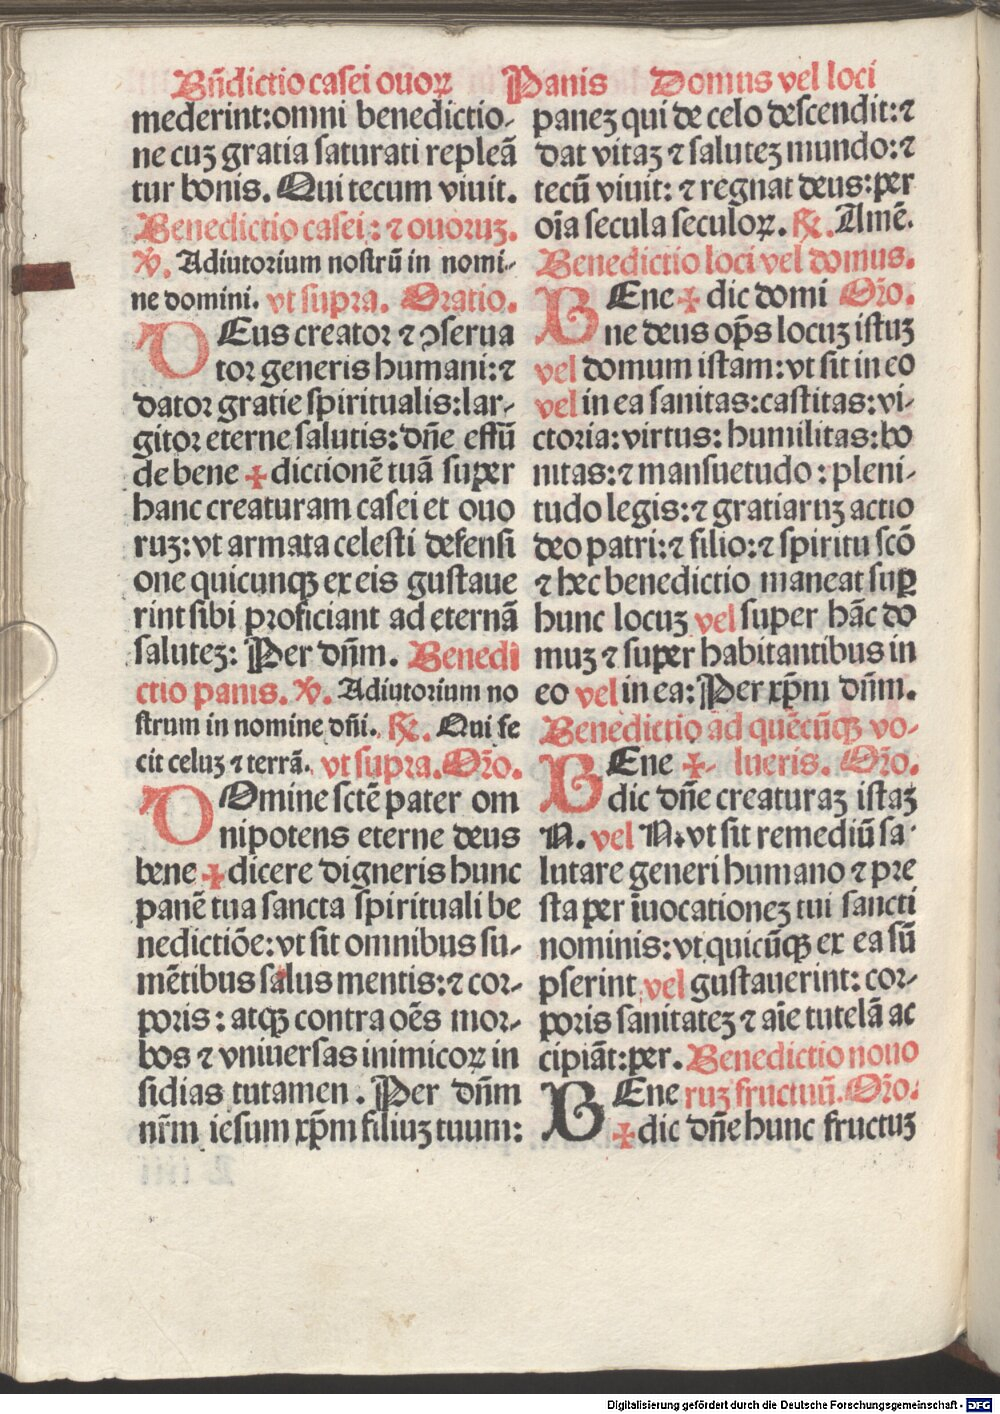 Bñdictio casei ouoꝝ Panis Domus vel loci
mederint:omni benedictio-
ne cuꝫ gratia saturati repleã
tur bonis. Qui tecum viuit.
Benedictio casei: ⁊ ouoruꝫ.
℣. Adiutorium nostrũ in nomi-
ne domini. vt supra. Oratio.
DEus creator ⁊ ꝯserua
tor generis humani:⁊
dator gratie spiritualis:lar-
gitor eterne salutis:dñe effũ
de bene ✠ dictionẽ tuã super
hanc creaturam casei et ouo
ruꝫ:vt armata celesti defensi
one quicunqꝫ ex eis gustaue
rint sibi proficiant ad eternã
saluteꝫ: Per dñm. Benedi
ctio panis. ℣. Adiutorium no
strum in nomine dñi. ℟. Qui fe
cit celuꝫ ⁊ terrã. vt supra. Or̃o.
DOmine sctẽ pater om
nipotens eterne deus
bene ✠ dicere digneris hunc
panẽ tua sancta spirituali be
nedictiõe:vt sit omnibus su-
mẽtibus salus mentis:⁊ cor-
poris: atqꝫ contra oẽs mor-
bos ⁊ vniuersas inimicoꝝ in
sidias tutamen. Per dñm
nr̃m iesum xp̃m filiuꝫ tuum:
paneꝫ qui de celo descendit:⁊
dat vitaꝫ ⁊ saluteꝫ mundo:⁊
tecũ viuit: ⁊ regnat deus:per
oĩa secula seculoꝝ. ℟. Amẽ.
Benedictio loci vel domus.
BEne ✠ dic domi Or̃o.
ne deus op̃s locuꝫ istuꝫ
vel domum istam:vt sit in eo
vel in ea sanitas:castitas:vi-
ctoria:virtus: humilitas:bo
nitas:⁊ mansuetudo: pleni-
tudo legis:⁊ gratiaruꝫ actio
deo patri:⁊ filio:⁊ spiritu scõ
⁊ hec benedictio maneat suꝑ
hunc locuꝫ vel super hãc do
muꝫ ⁊ super habitantibus in
eo vel in ea: Per xp̃m dñm.
Benedictio ad quẽcũqꝫ vo-
BEne ✠ lueris. Or̃o.
dic dñe creaturaꝫ istaꝫ
N. vel N. vt sit remediũ sa-
lutare generi humano ⁊ pre
sta per ĩuocationeꝫ tui sancti
nominis:vt quicũqꝫ ex ea sũ
pserint vel gustauerint: cor-
poris sanitateꝫ ⁊ aĩe tutelã ac
cipiãt:per. Benedictio nouo
BEne ruꝫ fructuũ. Or̃o.
✠ dic dñe hunc fructuꝫ
Digitalisierung gefördert durch die Deutsche Forschungsgemeinschaft - DFG